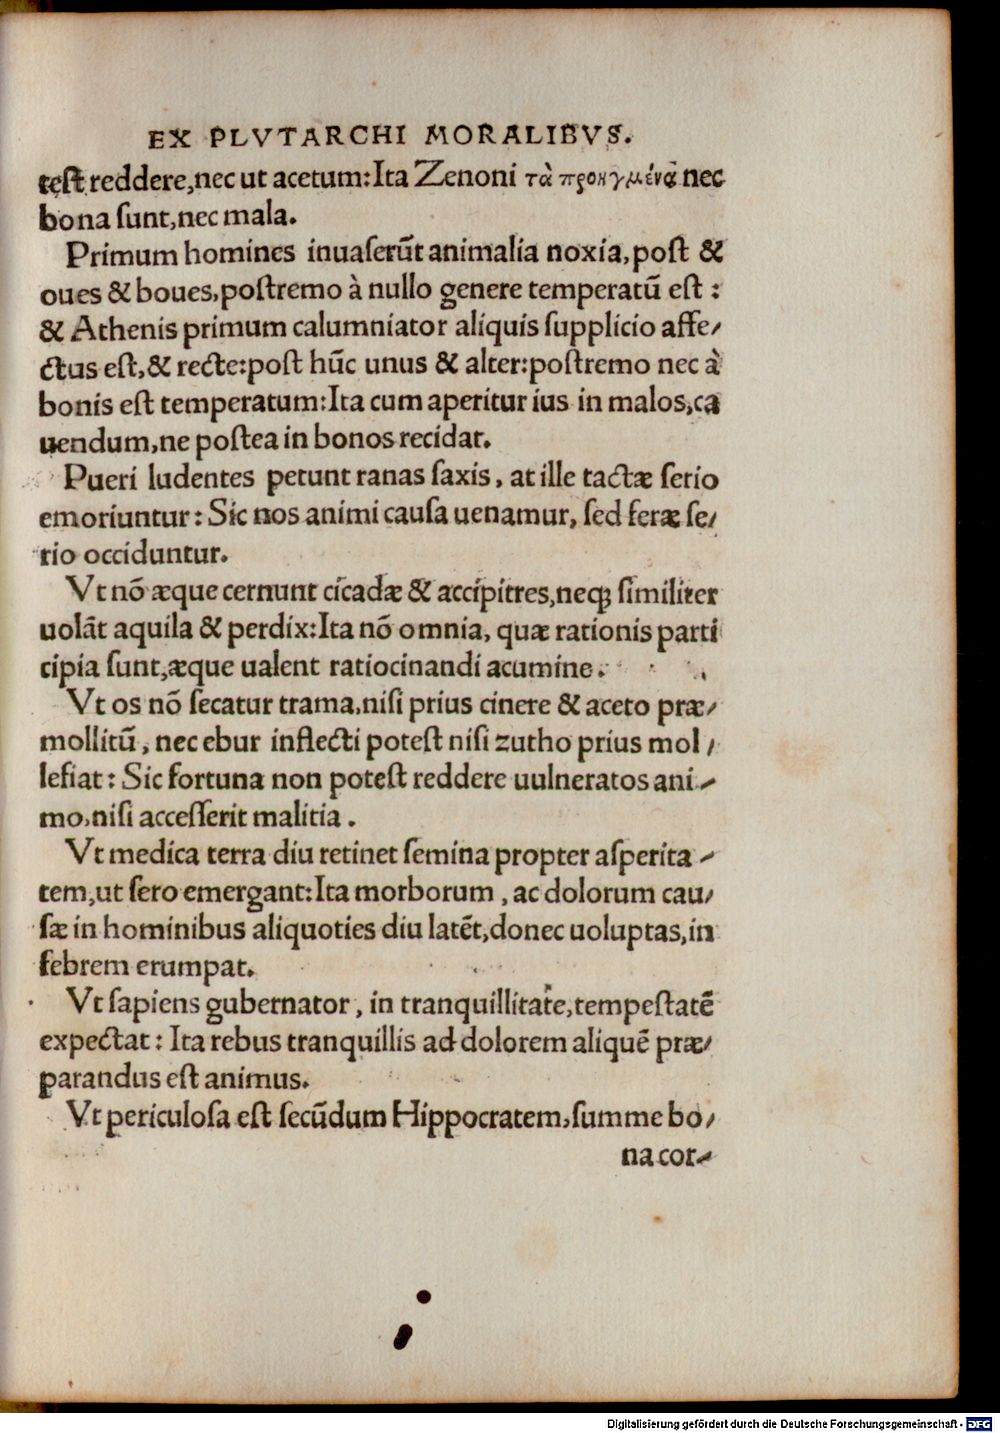 EX PLVTARCHI MORALIBVS.
test reddere,nec ut acetum:Ita Zenoni τὰ προηγμένα nec
bona sunt,nec mala.
Primum homines inuaserūt animalia noxia,post &
oues & boues,postremo à nullo genere temperatū est :
& Athenis primum calumniator aliquis supplicio affe/
ctus est,& recte:post hūc unus & alter:postremo nec à
bonis est temperatum:Ita cum aperitur ius in malos,ca
uendum,ne postea in bonos recidat.
Pueri ludentes petunt ranas saxis, at ille tactæ serio
emoriuntur: Sic nos animi causa uenamur, sed feræ se/
rio occiduntur.
Vt nō æque cernunt cicadæ & accipitres,neqꝫ similiter
uolāt aquila & perdix:Ita nō omnia, quæ rationis parti
cipia sunt,æque ualent ratiocinandi acumine.
Vt os nō secatur trama,nisi prius cinere & aceto præ/
mollitū, nec ebur inflecti potest nisi zutho prius mol/
lefiat: Sic fortuna non potest reddere uulneratos ani/
mo,nisi accesserit malitia.
Vt medica terra diu retinet semina propter asperita/
tem,ut sero emergant:Ita morborum, ac dolorum cau/
sæ in hominibus aliquoties diu latēt,donec uoluptas,in
febrem erumpat.
Vt sapiens gubernator, in tranquillitate,tempestatē
expectat: Ita rebus tranquillis ad dolorem aliquē præ/
parandus est animus.
Vt periculosa est secūdum Hippocratem,summe bo/
na cor/
Digitalisierung gefördert durch die Deutsche Forschungsgemeinschaft - DFG